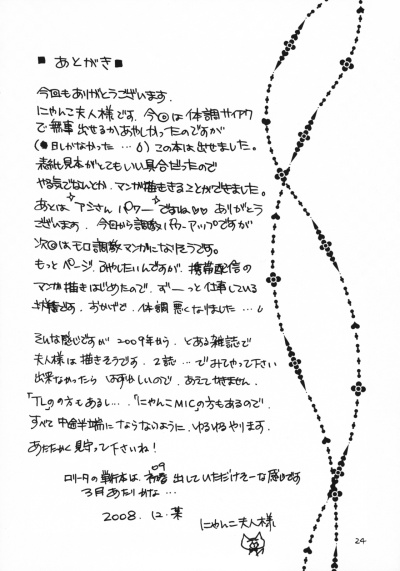 ■ あとがき ■
今回もありがとうございます.
にゃんこ夫人様です。今回は体調サイアクで
無事出せるかあやしかったのですが
(●日しかなかった…6) この本は出せました。
表紙見本がとてもいい具合だったので
やる気でなんとか、マンガ描ききることができました。
あとは アシさん パワー ですね♡♡ ありがとう
ございます. 今回から調教パワーアップですが
次回はモロ調教マンガになりそうです。
もっとページ ふやしたいんですが. 携帯配信の
マンガ描きはじめたので. ずーっと仕事している
です。おかげで. 体調 悪くなりました…
そんな感じですが 2009年から. とある雑誌で
夫人様は描きそうです. 2誌…でみてやって下さい
出来なかったら はずかしいので. あえてかきません.
「TL」の方もあるし…. 「にゃんこMIC」の方もあるので.
すべて 中途半端に ならないように. ゆるゆるやります.
あたたかく 見守って下さいね!
ロリータの単行本は. 09 出していただけそーな感じです
3月あたりかな…
2008. 12. 葉
にゃんこ夫人様
24